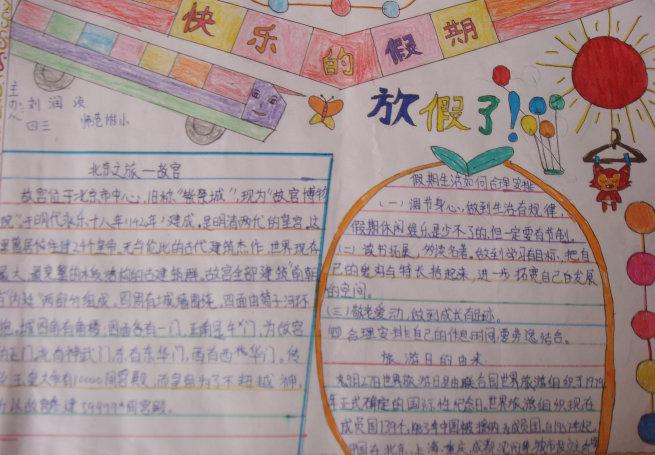 快乐的假期
主办人
刘润
四三 师范附小
放假了!
北京之旅一故宫
故宫位于北京市中心,旧称"紫禁城",现为"故宫博物
院"于明代永乐十八年1142年)建成,是明清两代的皇宫。这
24个皇帝。无与伦比的古代建筑杰作,世界现在
最大、最完整的木质结构的古建筑群。故宫全部建筑"
两部分组成,四周有城墙围绕,四面由筒子河环
抱。城四角有角楼,四面各有一门,正南是午门,为故宫
正门,北有神武门,东有东华门,西有西华门,传
玉皇大帝有10000间宫殿,而皇帝为了不超越神,
所以故宫修建了9999间宫殿。
假期生活如何合理安排
(一)调节身心,做到生活有规律,
假期休闲娱乐是少不了的,但一定要有节制。
(二)读书拓展,做到学习有目标,把自
己的 与特长 起来,进一步拓宽自己的发展
的空间。
(三)敬老爱动,做到成长有
四合理安排自己的作息时间,要劳逸结合。
旅游日的由来
9月27日世界旅游日是由联合国世界旅游组织于1979
年正式确定的国际性纪念日。世界旅游组织现在
成员国139个,1983年中国被接纳为成员国,
中国在北京、上海、重庆、成都、